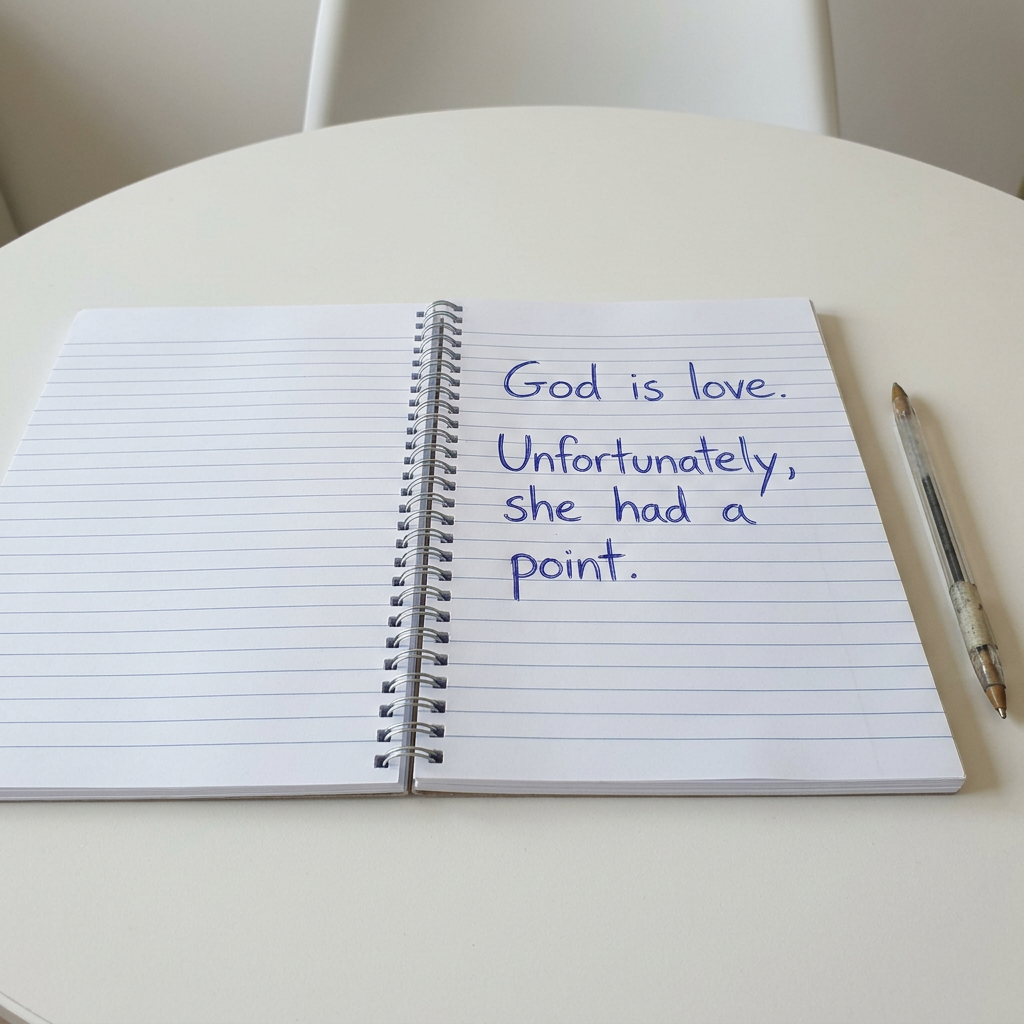 God is love.
Unfortunately,
she had a
point.